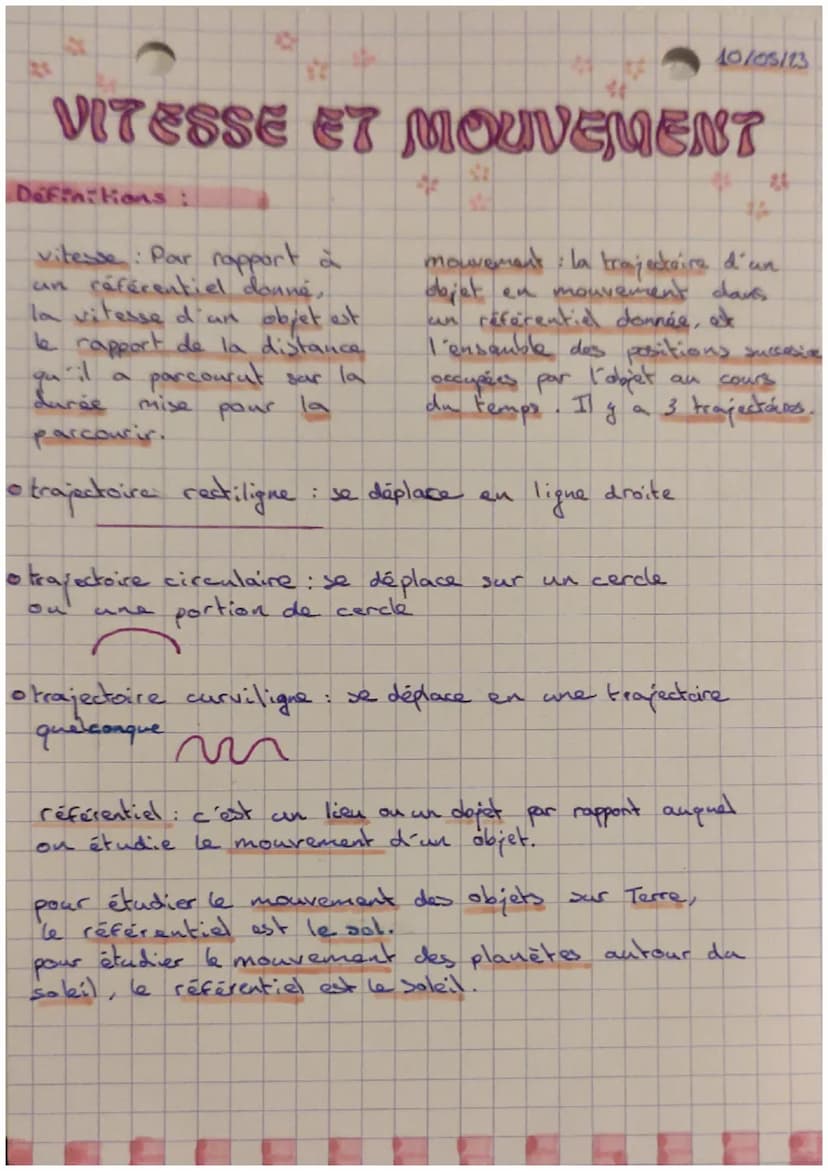 10/05/23
VITESSE ET MOUVEMENT
Définitions :
vitesse : Par rapport à
un référentiel donné,
la vitesse d'un objet est
le rapport de la distance
qu'il a parcourut sur la
durée mise pour la
parcourir.
mouvement : la trajectoire d'un
objet en mouvement dans
un référentiel donnée, est
l'ensemble des positions
occupées par l'objet au cours
du temps. Il y a 3 trajectoires.
trajectoire rectiligne : se déplace en ligne droite
trajectoire circulaire : se déplace sur un cercle
ou une portion de cercle
trajectoire curviligne : se déplace en une trajectoire
quelconque
référentiel : c'est un lieu ou un objet par rapport auquel
on étudie le mouvement d'un objet.
pour étudier le mouvement des objets sur Terre,
le référentiel est le sol.
pour étudier le mouvement des planètes autour du
soleil, le référentiel est le soleil.